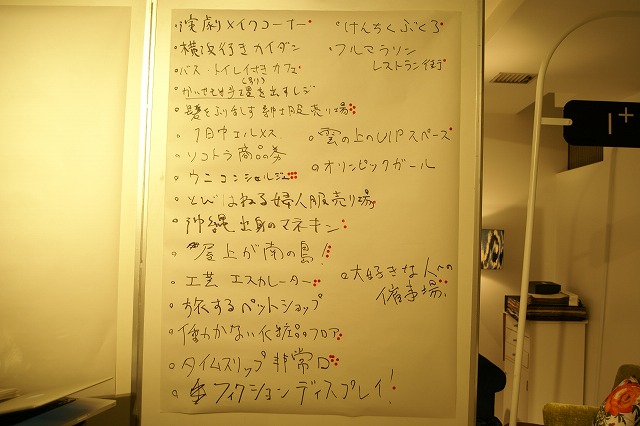 演劇メイクコーナー
横浜行きカイダン
バス・トイレ付きカフェ
手umを出すレジ
髪をふりみだす紳士服売り場
1日中エルメス
ソコトラ商品券
ウニコンシェルジュ
とびはねる婦人服売り場
沖縄出身のマネキン
屋上が南の島!
工芸エスカレーター
旅するペットショップ
働かない化粧品フロア
タイムスリップ非常口
フィクションディスプレイ!
けんちくぶくろ
フルマラソン
レストラン街
雲の上のVIPスペース
オリンピックガール
大好きな人への
催事場
1+